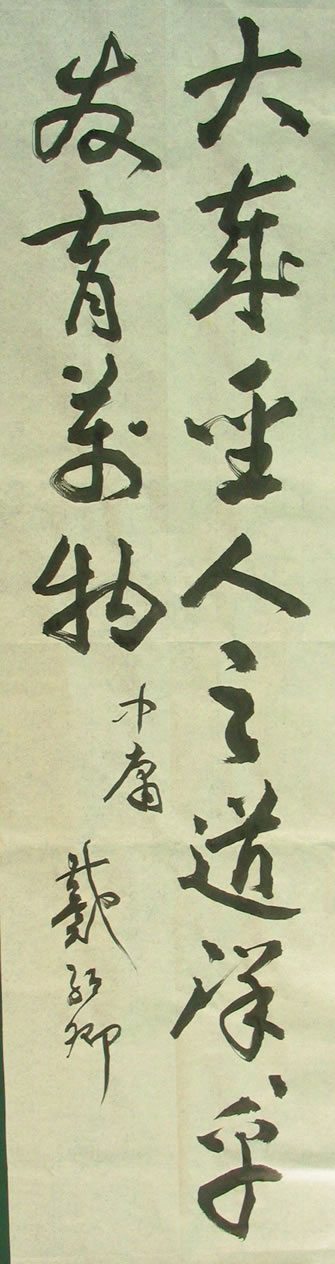 大哉聖人之道洋〻乎
發育萬物
中庸
戴卿